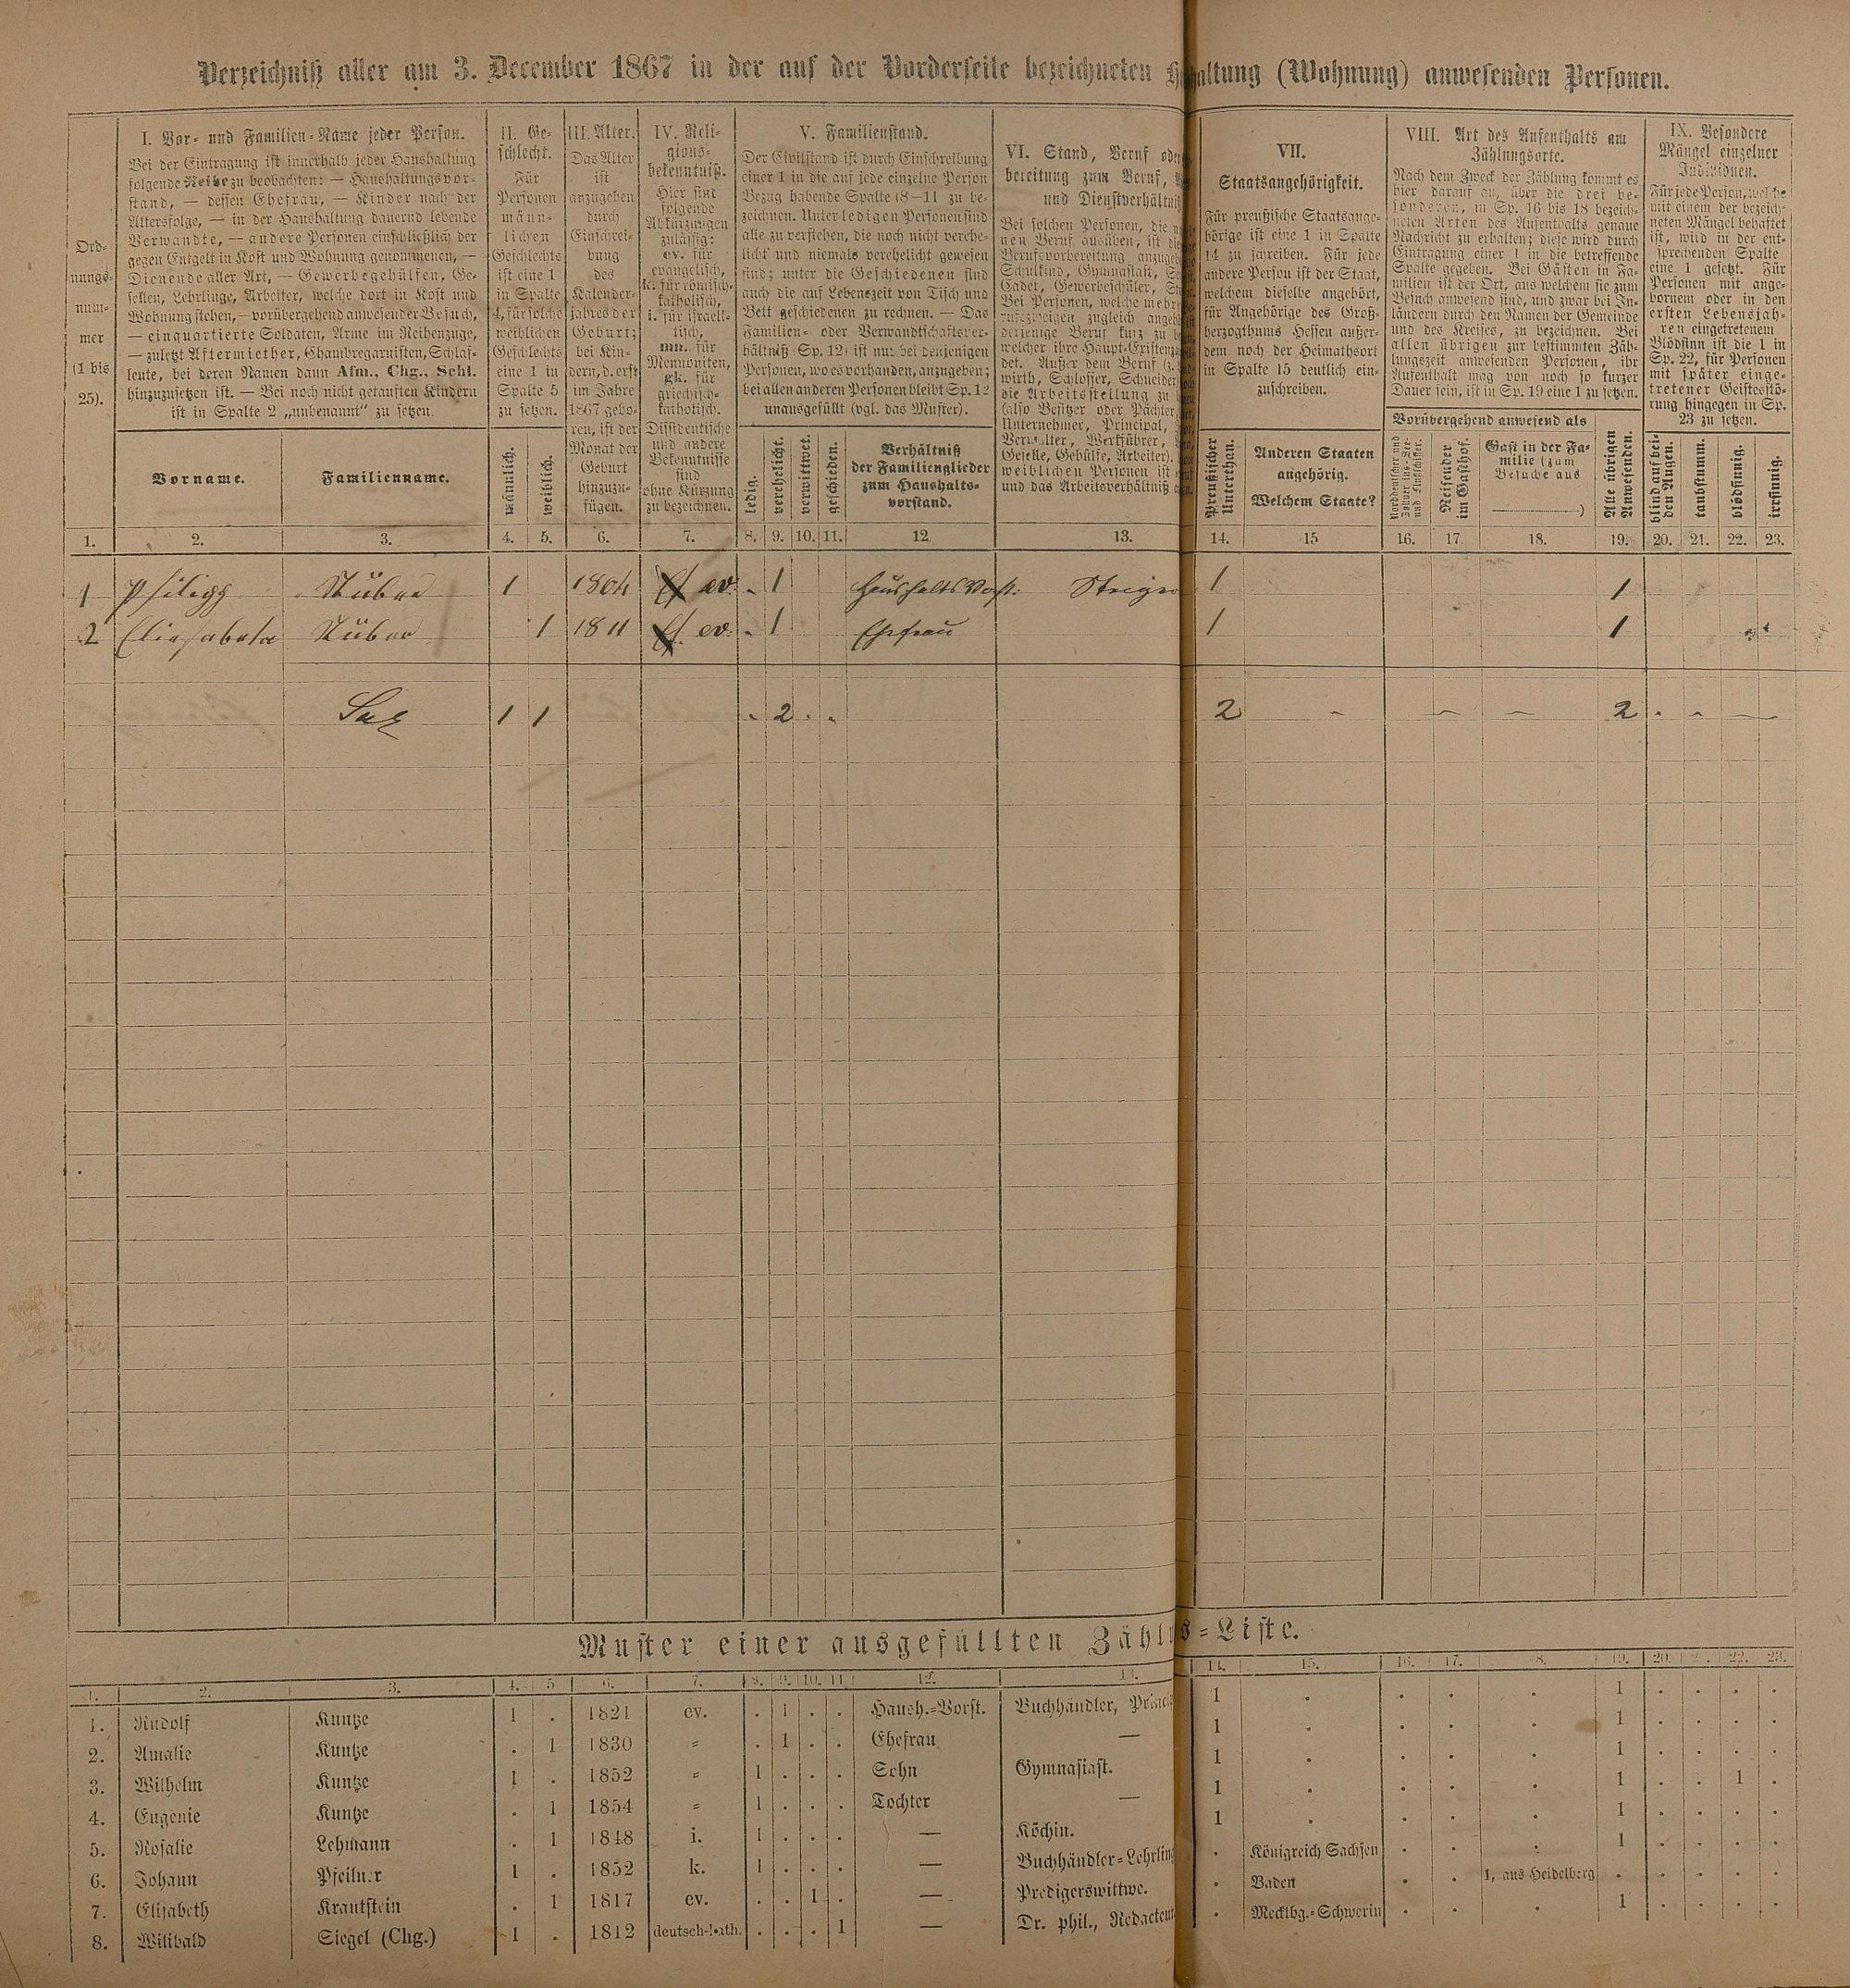 Verzeichniß aller am 3. December 1867 in der auf der Vorderseite bezeichneten H haltung (Wohnung) anwesenden Personen.
Ord-
nungs-
num-
mer
(1 bis
25).
I. Vor- und Familien-Name jeder Person.
Bei der Eintragung ist innerhalb jeder Haushaltung
folgende Reihe zu beobachten: — Haushaltungsvor-
stand, — dessen Ehefrau, — Kinder nach der
Altersfolge, — in der Haushaltung dauernd lebende
Verwandte, — andere Personen einschließlich der
gegen Entgelt in Kost und Wohnung genommenen, —
Dienende aller Art, — Gewerbsgehülfen, Ge-
sellen, Lehrlinge, Arbeiter, welche dort in Kost und
Wohnung stehen, — vorübergehend anwesender Besuch,
— einquartierte Soldaten, Arme im Reihenzuge,
— zuletzt Aftermiether, Chambregarnisten, Schlaf-
leute, bei deren Namen dann Afm., Chg., Schl.
hinzuzusetzen ist. — Bei noch nicht getauften Kindern
ist in Spalte 2 „unbenannt" zu setzen.
Vorname.
Familienname.
II. Ge-
schlecht.
Für
Personen
männ-
lichen
Geschlechts
ist eine 1
in Spalte
4, für solche
weiblichen
Geschlechts
eine 1 in
Spalte 5
zu setzen.
männlich.
weiblich.
III. Alter.
Das Alter
ist
anzugeben
durch
Einschrei-
bung
des
Kalender-
jahres der
Geburt;
bei Kin-
dern, d. erst
im Jahre
1867 gebo-
ren, ist der
Monat der
Geburt
hinzuzu-
fügen.
IV. Reli-
gions-
bekenntniß.
Hier sind
folgende
Abkürzungen
zulässig:
ev. für
evangelisch,
k. für römisch-
katholisch,
i. für israeli-
tisch,
mn. für
Mennoniten,
gk. für
griechisch-
katholisch.
Dissidentische
und andere
Bekenntnisse
sind
ohne Kürzung
zu bezeichnen.
V. Familienstand.
Der Civilstand ist durch Einschreibung
einer 1 in die auf jede einzelne Person
Bezug habende Spalte (8—11 zu be-
zeichnen. Unter ledigen Personen sind
alle zu verstehen, die noch nicht verehe-
licht und niemals verehelicht gewesen
sind; unter die Geschiedenen sind
auch die auf Lebenszeit von Tisch und
Bett geschiedenen zu rechnen. — Das
Familien- oder Verwandtschaftsver-
hältniß (Sp. 12) ist nur bei denjenigen
Personen, wo es vorhanden, anzugeben;
bei allen anderen Personen bleibt Sp. 12
unausgefüllt (vgl. das Muster).
ledig.
verehelicht.
verwittwet.
geschieden.
Verhältniß
der Familienglieder
zum Haushalts-
vorstand.
VI. Stand, Beruf oder
bereitung zum Beruf,
und Dienstverhältniß
Bei solchen Personen, die
nen Beruf ausüben, ist die
Berufsvorbereitung
Schulkind, Gymnasiast,
Cadet, Gewerbeschüler,
Bei Personen, welche
zugleich
derjenige Beruf kurz zu
welcher ihre Haupt-Existenz
det. Außer dem Beruf
wirth, Schlosser, Schneider
die Arbeitsstellung zu
(also Besitzer oder Pächter,
Unternehmer, Principal,
Verwalter, Werkführer,
Geselle, Gehülfe, Arbeiter).
weiblichen Personen ist
und das Arbeitsverhältniß
VII.
Staatsangehörigkeit.
Für preußische Staatsange-
hörige ist eine 1 in Spalte
14 zu schreiben. Für jede
andere Person ist der Staat,
welchem dieselbe angehört,
für Angehörige des Groß-
herzogthums Hessen außer-
dem noch der Heimathsort
in Spalte 15 deutlich ein-
zuschreiben.
Preußischer
Unterthan.
Anderen Staaten
angehörig.
Welchem Staate?
VIII. Art des Aufenthalts am
Zählungsorte.
Nach dem Zweck der Zählung kommt es
hier darauf an, über die drei be-
sonderen, in Sp. 16 bis 18 bezeich-
neten Arten des Aufenthalts genaue
Nachricht zu erhalten; diese wird durch
Eintragung einer 1 in die betreffende
Spalte gegeben. Bei Gästen in Fa-
milien ist der Ort, aus welchem sie zum
Besuch anwesend sind, und zwar bei In-
ländern durch den Namen der Gemeinde
und des Kreises, zu bezeichnen. Bei
allen übrigen zur bestimmten Zäh-
lungszeit anwesenden Personen, ihr
Aufenthalt mag von noch so kurzer
Dauer sein, ist in Sp. 19 eine 1 zu setzen.
Vorübergehend anwesend als
Reisender
im Gasthof.
Gast in der Fa-
milie (zum
Besuche aus
)
Alle übrigen
Anwesenden.
IX. Besondere
Mängel einzelner
Individuen.
Für jede Person, welche
mit einem der bezeich-
neten Mängel behaftet
ist, wird in der ent-
sprechenden Spalte
eine 1 gesetzt. Für
Personen mit ange-
bornem oder in den
ersten Lebensjah-
ren eingetretenem
Blödsinn ist die 1 in
Sp. 22, für Personen
mit später einge-
tretener Geistesstö-
rung hingegen in Sp.
23 zu setzen.
blind auf bei-
den Augen.
taubstumm.
blödsinnig.
irrsinnig.
1. 2. 3. 4. 5. 6. 7. 8. 9. 10. 11. 12 13. 14. 15 16. 17. 18. 19. 20. 21. 22. 23.
1 Philipp Stüber 1 1804 ev. 1 Haushalts Vorst. Steiger 1 1
2 Eliesabeta Stüber 1 1811 ev. 1 Ehefrau 1 1
Sa 1 1 2 2 2
Muster einer ausgefüllten Zähl s-Liste.
1. 2. 3. 4. 5 6. 7. 8. 9. 10. 11 12. 13. 14. 15. 16. 17. 18. 19. 20. 21. 22. 23.
1. Rudolf Kuntze 1 . 1821 ev. . 1 . . Haush.-Vorst. Buchhändler, 1 . . . . 1 . . . .
2. Amalie Kuntze . 1 1830 " . 1 . . Ehefrau — 1 . . . . 1 . . . .
3. Wilhelm Kuntze 1 . 1852 " 1 . . . Sohn Gymnasiast. 1 . . . . 1 . . . .
4. Eugenie Kuntze . 1 1854 " 1 . . . Tochter — 1 . . . . 1 . . 1 .
5. Rosalie Lehmann . 1 1848 i. 1 . . . — Köchin. 1 . . . . 1 . . . .
6. Johann Pfeilner 1 . 1852 k. 1 . . . — Buchhändler-Lehrling . Königreich Sachsen . . . 1 . . . .
7. Elisabeth Krautstein . 1 1817 ev. . . 1 . — Predigerswittwe. . Baden . . 1, aus Heidelberg . . . . .
8. Wilibald Siegel (Chg.) 1 . 1812 deutsch-kath. . . . 1 — Dr. phil., Redacteur . Mecklbg.-Schwerin . . . 1 . . . .